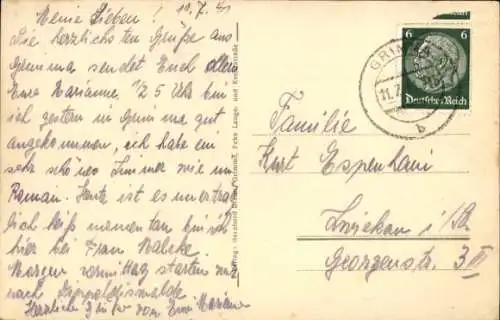 Meine Lieben! 10.7.41
Die herzlichsten Grüße aus
Grimma sendet Euch allen
Eure Marianne. 1/2 5 Uhr bin
ich gestern in Grimma gut
angekommen, ich habe ein
sehr schönes Zimmer wie im
Roman. Heute ist es unerträg
lich heiß, momentan bin ich
hier bei Frau
Morgen vormittag starten wir
nach Dippoldiswalde
Herzliche Grüße von Eurer Marianne
GRIMMA
11.7.
b
6 6
Deutsches Reich
Familie
Kurt Espenhain
Zwickau i/Sa.
Georgenstr. 3